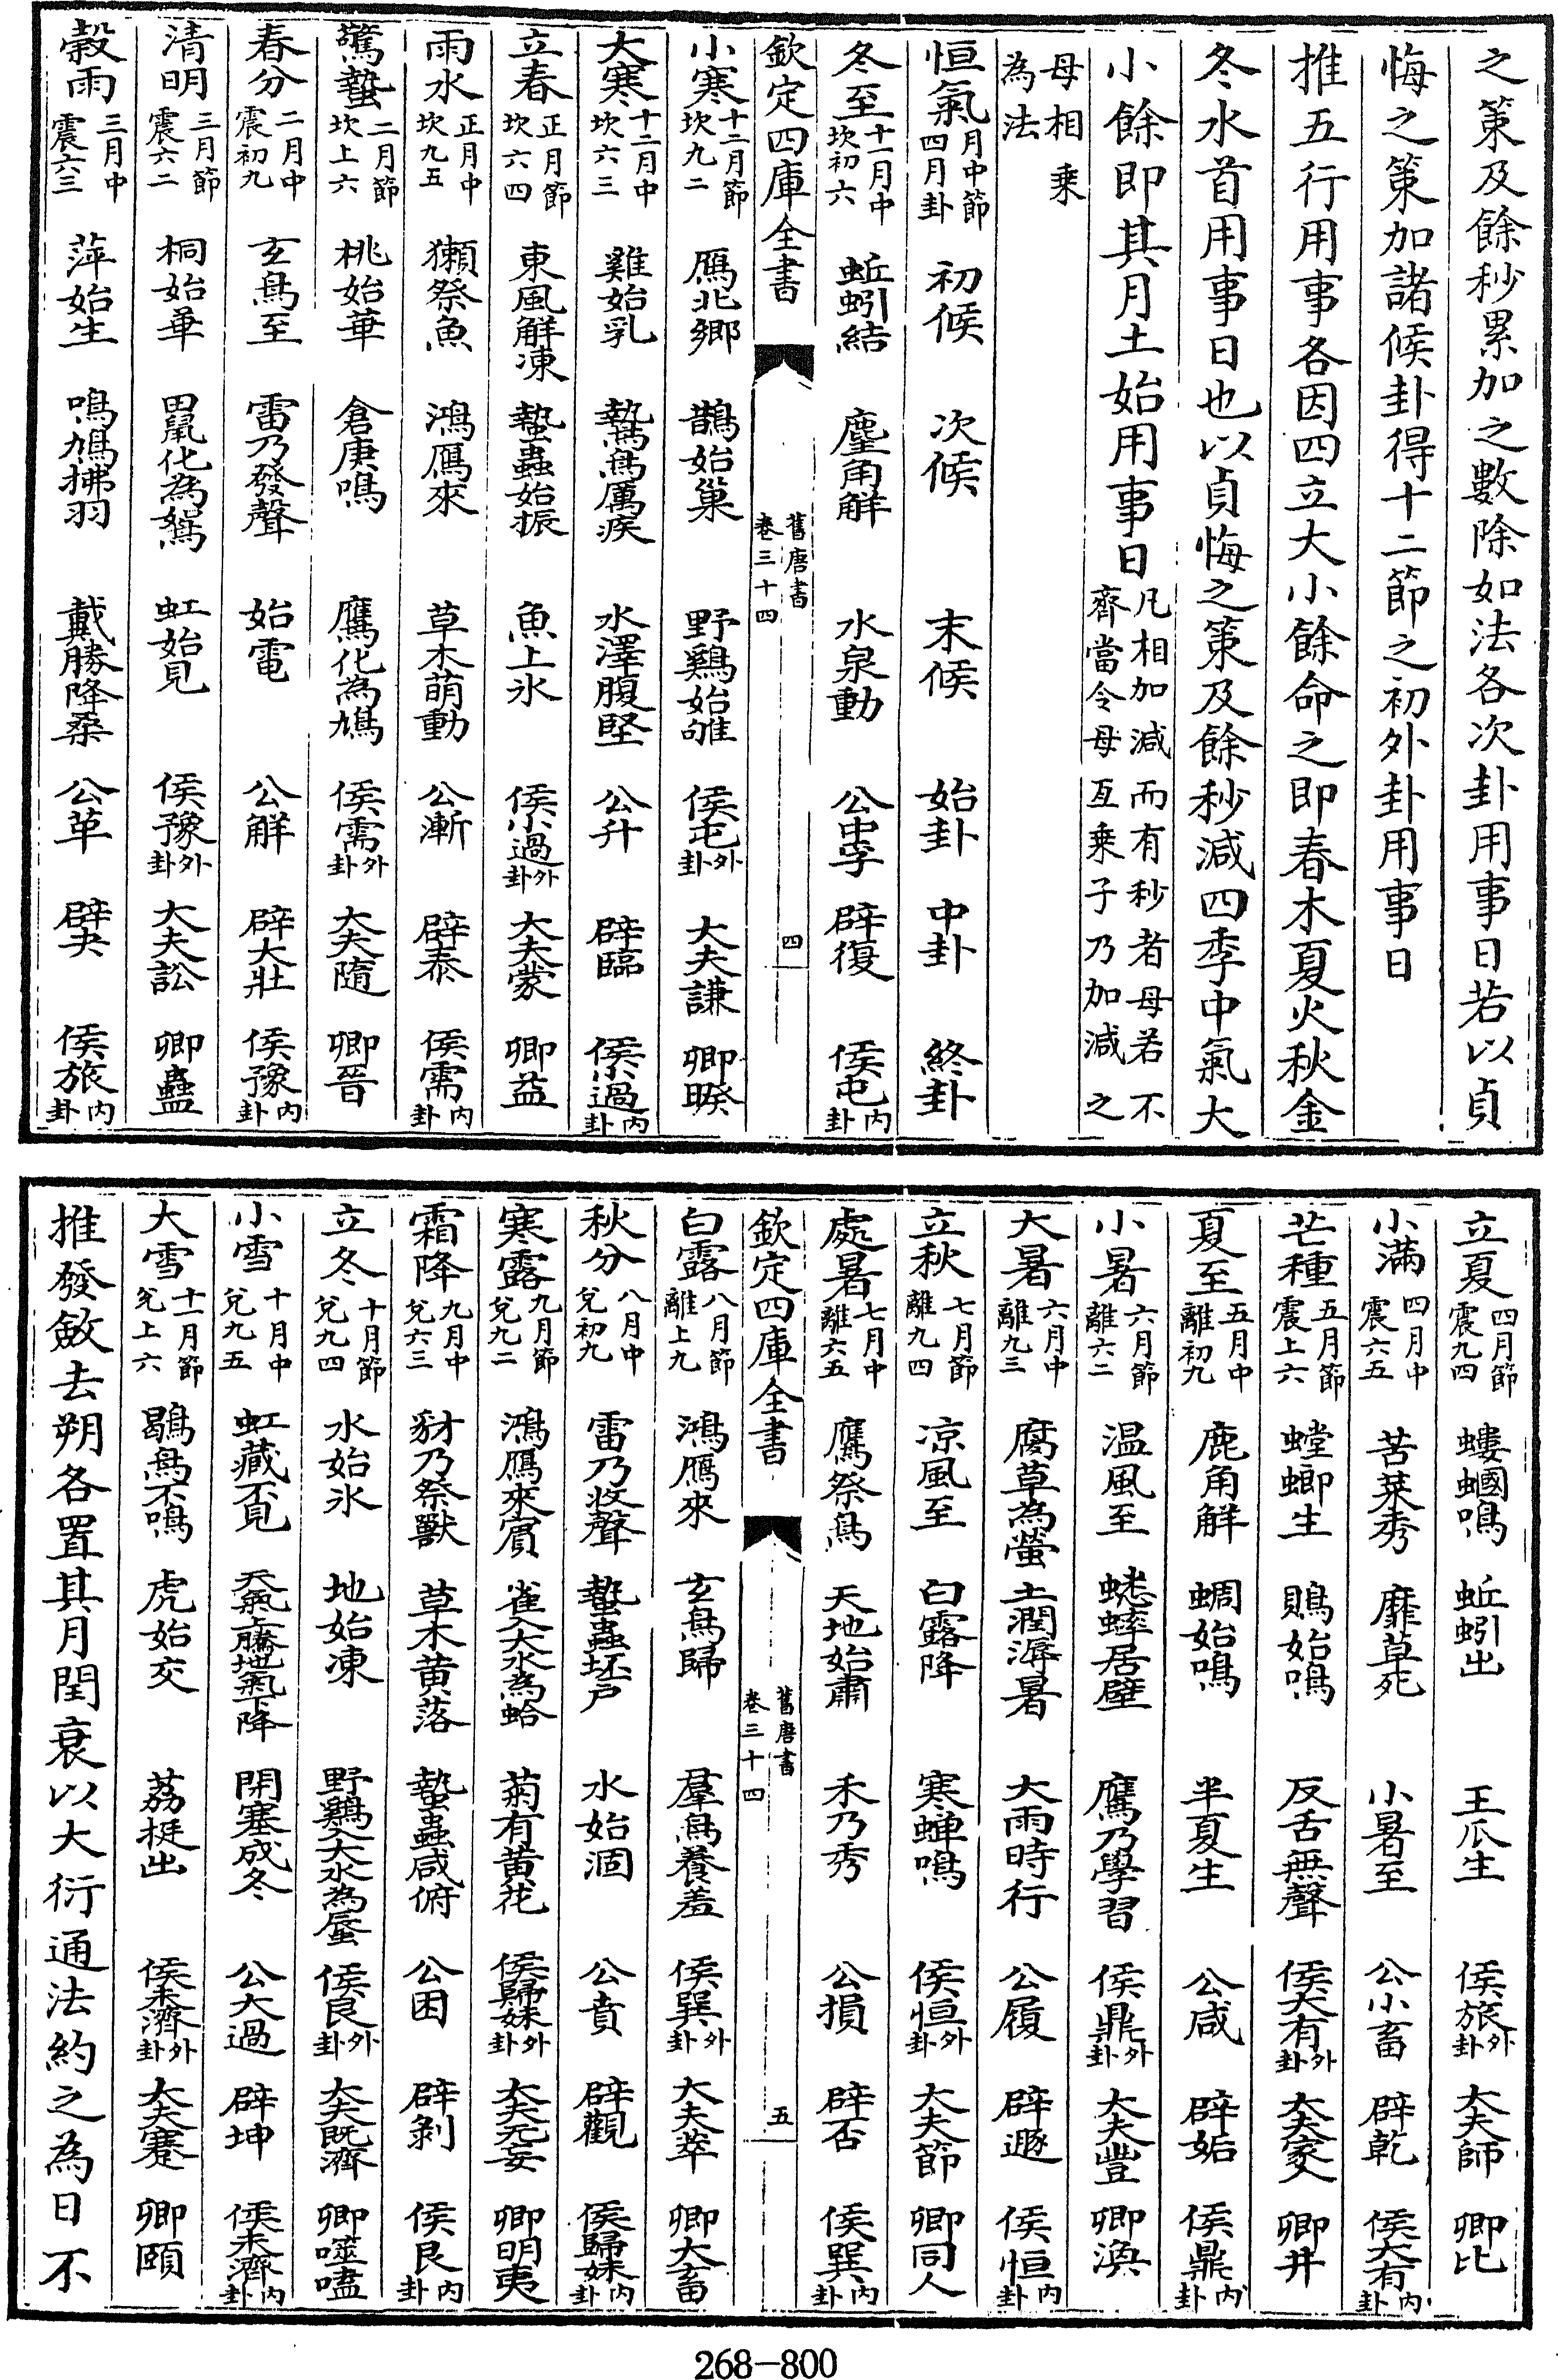 之策及餘秒累加之數除如法各次卦用事日若以貞
悔之策加諸候卦得十二節之初外卦用事日
推五行用事各因四立大小餘命之即春木夏火秋金
冬水首用事日也以貞悔之策及餘秒減四季中氣大
小餘即其月土始用事日凡相加減而有秒者母若不齊當令母互乘子乃加減之
母相乘為法
恒氣月中節四月卦 初候 次候 末候 始卦 中卦 終卦
冬至十一月中坎初六 蚯蚓結 麈角解 水泉動 公中孚 辟復 侯屯內卦
欽定四庫全書 舊唐書卷三十四 四
小寒十二月節坎九二 鴈北鄉 鵲始巢 野鷄始雊 侯屯外卦 大夫謙 卿睽
大寒十二月中坎六三 雞始乳 鷙鳥厲疾 水澤腹堅 公升 辟臨 侯小過內卦
立春正月節坎六四 東風解凍 蟄蟲始振 魚上冰 侯小過外卦 大夫蒙 卿益
雨水正月中坎九五 獺祭魚 鴻鴈來 草木萌動 公漸 辟泰 侯需內卦
驚蟄二月節坎上六 桃始華 倉庚鳴 鷹化為鳩 侯需外卦 大夫隨 卿晉
春分二月中震初九 玄鳥至 雷乃發聲 始電 公解 辟大壯 侯豫內卦
清明三月節震六二 桐始華 田鼠化為鴽 虹始見 侯豫外卦 大夫訟 卿蠱
穀雨三月中震六三 萍始生 鳴鳩拂羽 戴勝降桑 公革 辟夬 侯旅內卦
立夏四月節震九四 螻蟈鳴 蚯蚓出 王瓜生 侯旅外卦 大夫師 卿比
小滿四月中震六五 苦菜秀 靡草死 小暑至 公小畜 辟乾 侯大有內卦
芒種五月節震上六 螳螂生 鵙始鳴 反舌無聲 侯大有外卦 大夫家人 卿井
夏至五月中離初九 鹿角解 蜩始鳴 半夏生 公咸 辟姤 侯鼎內卦
小暑六月節離六二 温風至 蟋蟀居壁 鷹乃學習 侯鼎外卦 大夫豐 卿渙
大暑六月中離九三 腐草為螢 土潤溽暑 大雨時行 公履 辟遯 侯恒內卦
立秋七月節離九四 涼風至 白露降 寒蟬鳴 侯恒外卦 大夫節 卿同人
處暑七月中離六五 鷹祭鳥 天地始肅 禾乃秀 公損 辟否 侯巽內卦
欽定四庫全書 舊唐書卷三十四 五
白露八月節離上九 鴻鴈來 玄鳥歸 羣鳥養羞 侯巽外卦 大夫萃 卿大畜
秋分八月中兌初九 雷乃收聲 蟄蟲坯戸 水始涸 公賁 辟觀 侯歸妹內卦
寒露九月節兌九二 鴻鴈來賓 雀入大水為蛤 菊有黄花 侯歸妹外卦 大夫无妄 卿明夷
霜降九月中兌六三 豺乃祭獸 草木黄落 蟄蟲咸俯 公困 辟剝 侯艮內卦
立冬十月節兌九四 水始冰 地始凍 野鷄入大水為蜃 侯艮外卦 大夫既濟 卿噬嗑
小雪十月中兌九五 虹藏不見 天氣上騰地氣下降 閉塞成冬 公大過 辟坤 侯未濟內卦
大雪十一月節兌上六 鶡鳥不鳴 虎始交 荔挺出 侯未濟外卦 大夫蹇 卿頤
推發斂去朔各置其月閏衰以大衍通法約之為日不
268-800